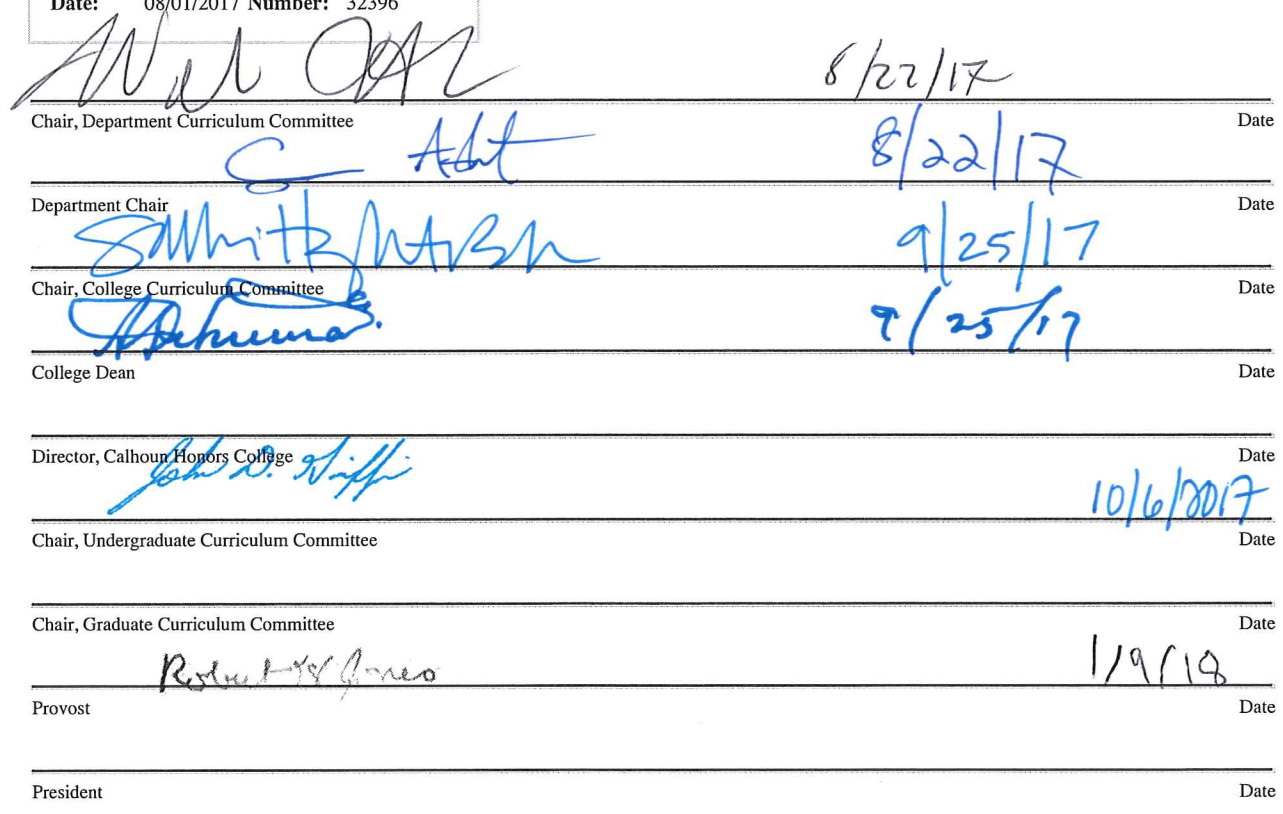 Date: 08/01/2017 Number: 32396
8/22/17
Chair, Department Curriculum Committee Date
8/22/17
Department Chair Date
9/25/17
Chair, College Curriculum Committee Date
9/25/17
College Dean Date
Director, Calhoun Honors College Date
John D. Griffi 10/6/2017
Chair, Undergraduate Curriculum Committee Date
Chair, Graduate Curriculum Committee Date
Robert H Jones 1/9/18
Provost Date
President Date